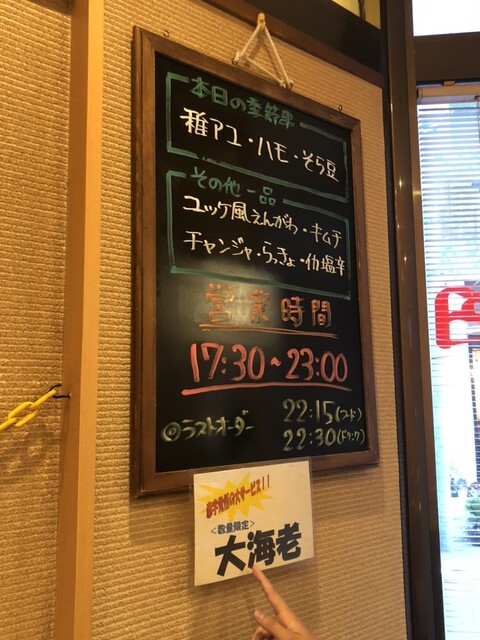 本日の季節串
稚アユ・ハモ・そら豆
その他一品
ユッケ風えんがわ・キムチ
チャンジャ・らっきょ・イカ塩辛
営業時間
17:30~23:00
◎ラストオーダー
22:15(フード)
22:30(ドリンク)
の大サービス!!
<数量限定>
大海老